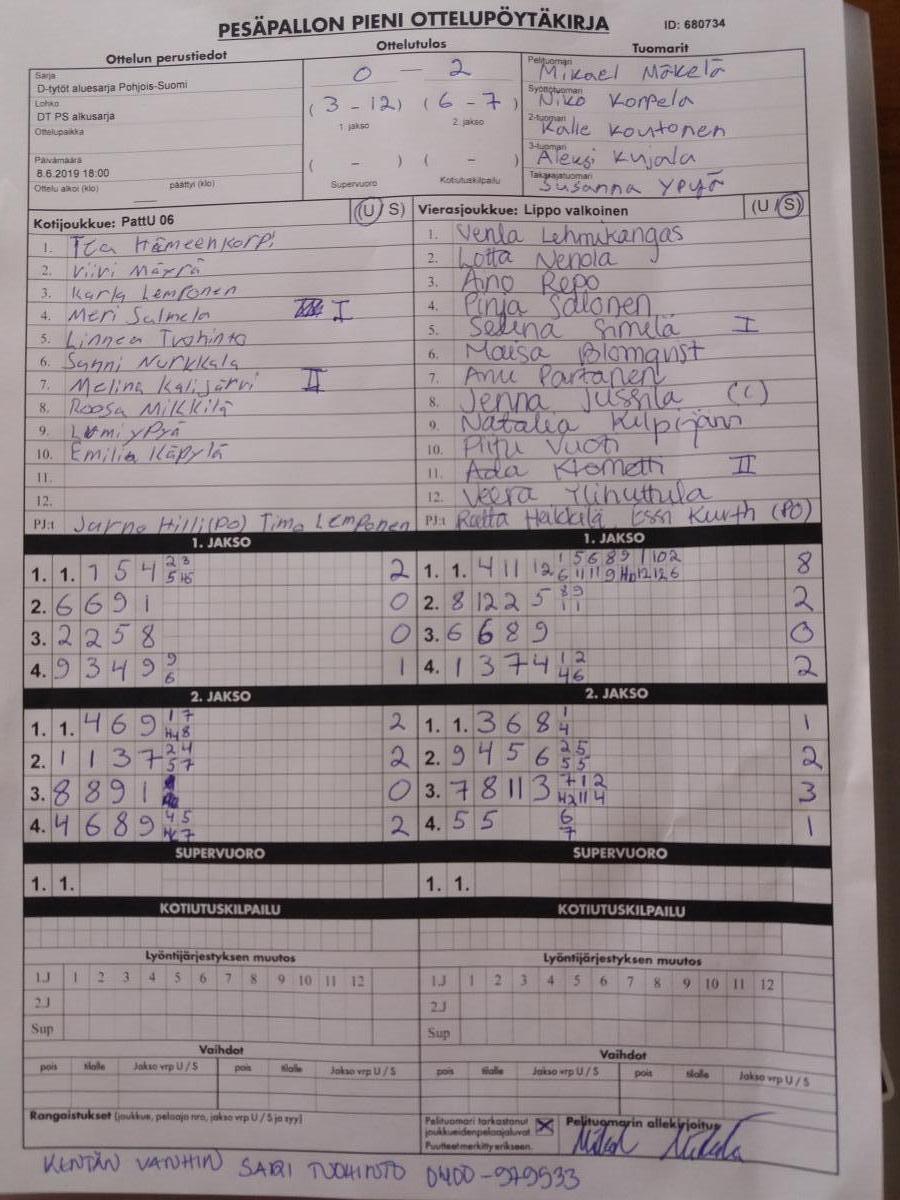 PESÄPALLON PIENI OTTELUPÖYTÄKIRJA ID: 680734
Ottelun perustiedot Ottelutulos Tuomarit
Sarja
D-tytöt aluesarja Pohjois-Suomi
Lohko
DT PS alkusarja
Ottelupaikka
Päivämäärä
8.6.2019 18:00
Ottelu alkoi (klo) päättyi (klo)
0 – 2
( 3 - 12 ) ( 6 - 7 )
1. jakso 2. jakso
( - ) ( - )
Supervuoro Kotiutuskilpailu
Pelituomari Mikael Mäkelä
Syöttötuomari Niko Korpela
2-tuomari Kalle Koutonen
3-tuomari Aleksi Kujala
Takarajatuomari Susanna Ypyä
Kotijoukkue: PattU 06 (U / S)
1. Tea Hämeenkorpi
2. Viivi Mäyrä
3. Karla Lemponen
4. Meri Salmela I
5. Linnea Tuohinto
6. Sanni Nurkkala
7. Melina Kalijärvi II
8. Roosa Mikkilä
9. Lumi Ypyä
10. Emilia Käpylä
11.
12.
PJ:t Jarno Hilli (PO) Timo Lemponen
Vierasjoukkue: Lippo valkoinen (U / S)
1. Venla Lehmikangas
2. Lotta Nenola
3. Aino Repo
4. Pinja Salonen
5. Selena Simelä I
6. Maisa Blomqvist
7. Anu Partanen
8. Jenna Jussila (C)
9. Natalia Kilpijärvi
10. Piitu Vuoti
11. Ada II
12. Veera Ylihuttula
PJ:t Raita Hakkila Essi Kurth (PO)
1. JAKSO 1. JAKSO
1. 1. 7 5 4 2 3 2
5 15
2. 6 6 9 1 0
3. 2 2 5 8 0
4. 9 3 4 9 9 1
6
1. 1. 4 11 12 1 5 6 8 9 1 10 2 8
6 11 11 9 12 12 6
2. 8 12 2 5 8 9 2
1 1
3. 6 6 8 9 0
4. 1 3 7 4 1 2 2
4 6
2. JAKSO 2. JAKSO
1. 1. 4 6 9 1 7 2
8
2. 1 1 3 7 2 4 2
5 7
3. 8 8 9 1 0
4. 4 6 8 9 4 5 2
7
1. 1. 3 6 8 1 1
4
2. 9 4 5 6 2 5 2
5 5
3. 7 8 11 3 7 1 2 3
H2 11 4
4. 5 5 6 1
7
SUPERVUORO SUPERVUORO
1. 1. 1. 1.
KOTIUTUSKILPAILU KOTIUTUSKILPAILU
Lyöntijärjestyksen muutos Lyöntijärjestyksen muutos
1.J 1 2 3 4 5 6 7 8 9 10 11 12 1.J 1 2 3 4 5 6 7 8 9 10 11 12
2.J 2.J
Sup Sup
Vaihdot Vaihdot
pois tilalle Jakso vrp U / S pois tilalle Jakso vrp U / S pois tilalle Jakso vrp U / S pois tilalle Jakso vrp U / S
Rangaistukset (joukkue, pelaaja nro, jakso vrp U / S ja syy)
Pelituomari tarkastanut
joukkueiden pelaajaluvat
Puutteet merkitty erikseen.
Pelituomarin allekirjoitus
KENTÄN VANHIN SARI TUOHINTO 0400-979533